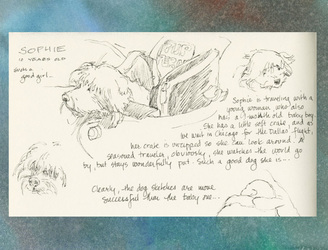 SOPHIE
Such a
good girl..
Sophie is traveling with a
young woman who also
has a 7-month old baby boy.
She has a little soft crate and as
we wait in Chicago for the Dallas flight,
her crate is unzipped so she can look around. A
seasoned traveler, obviously, she watches the world go
by, but stays wonderfully put. Such a good dog she is...
Clearly, the dog sketches are more
successful than the baby one...